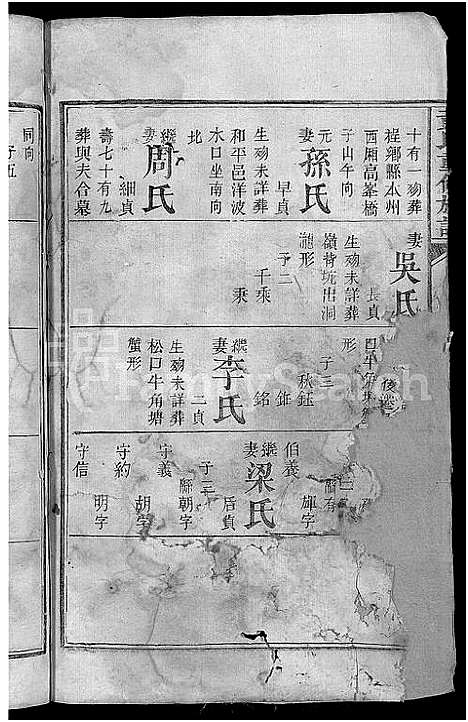 十有一歿葬
程鄉縣本州
西廂高峯橋
子山午向
元妻孫氏
早貞
生歿未詳葬
和平邑洋波
水口坐南向
北
繼妻周氏
細貞
壽七十有九
葬與夫合墓
妻吳氏
長貞
生歿未詳葬
嶺背坑出洞
蛇形
子二
千乘
乘
形
子三
秋鈺
鉦
銘
繼妻李氏
二貞
生歿未詳葬
松口牛角塘
蟹形
輝字
伯義
繼妻梁氏
后貞
子三
嗣朝字
守義
胡字
守約
明字
守信
同向
FamilySearch